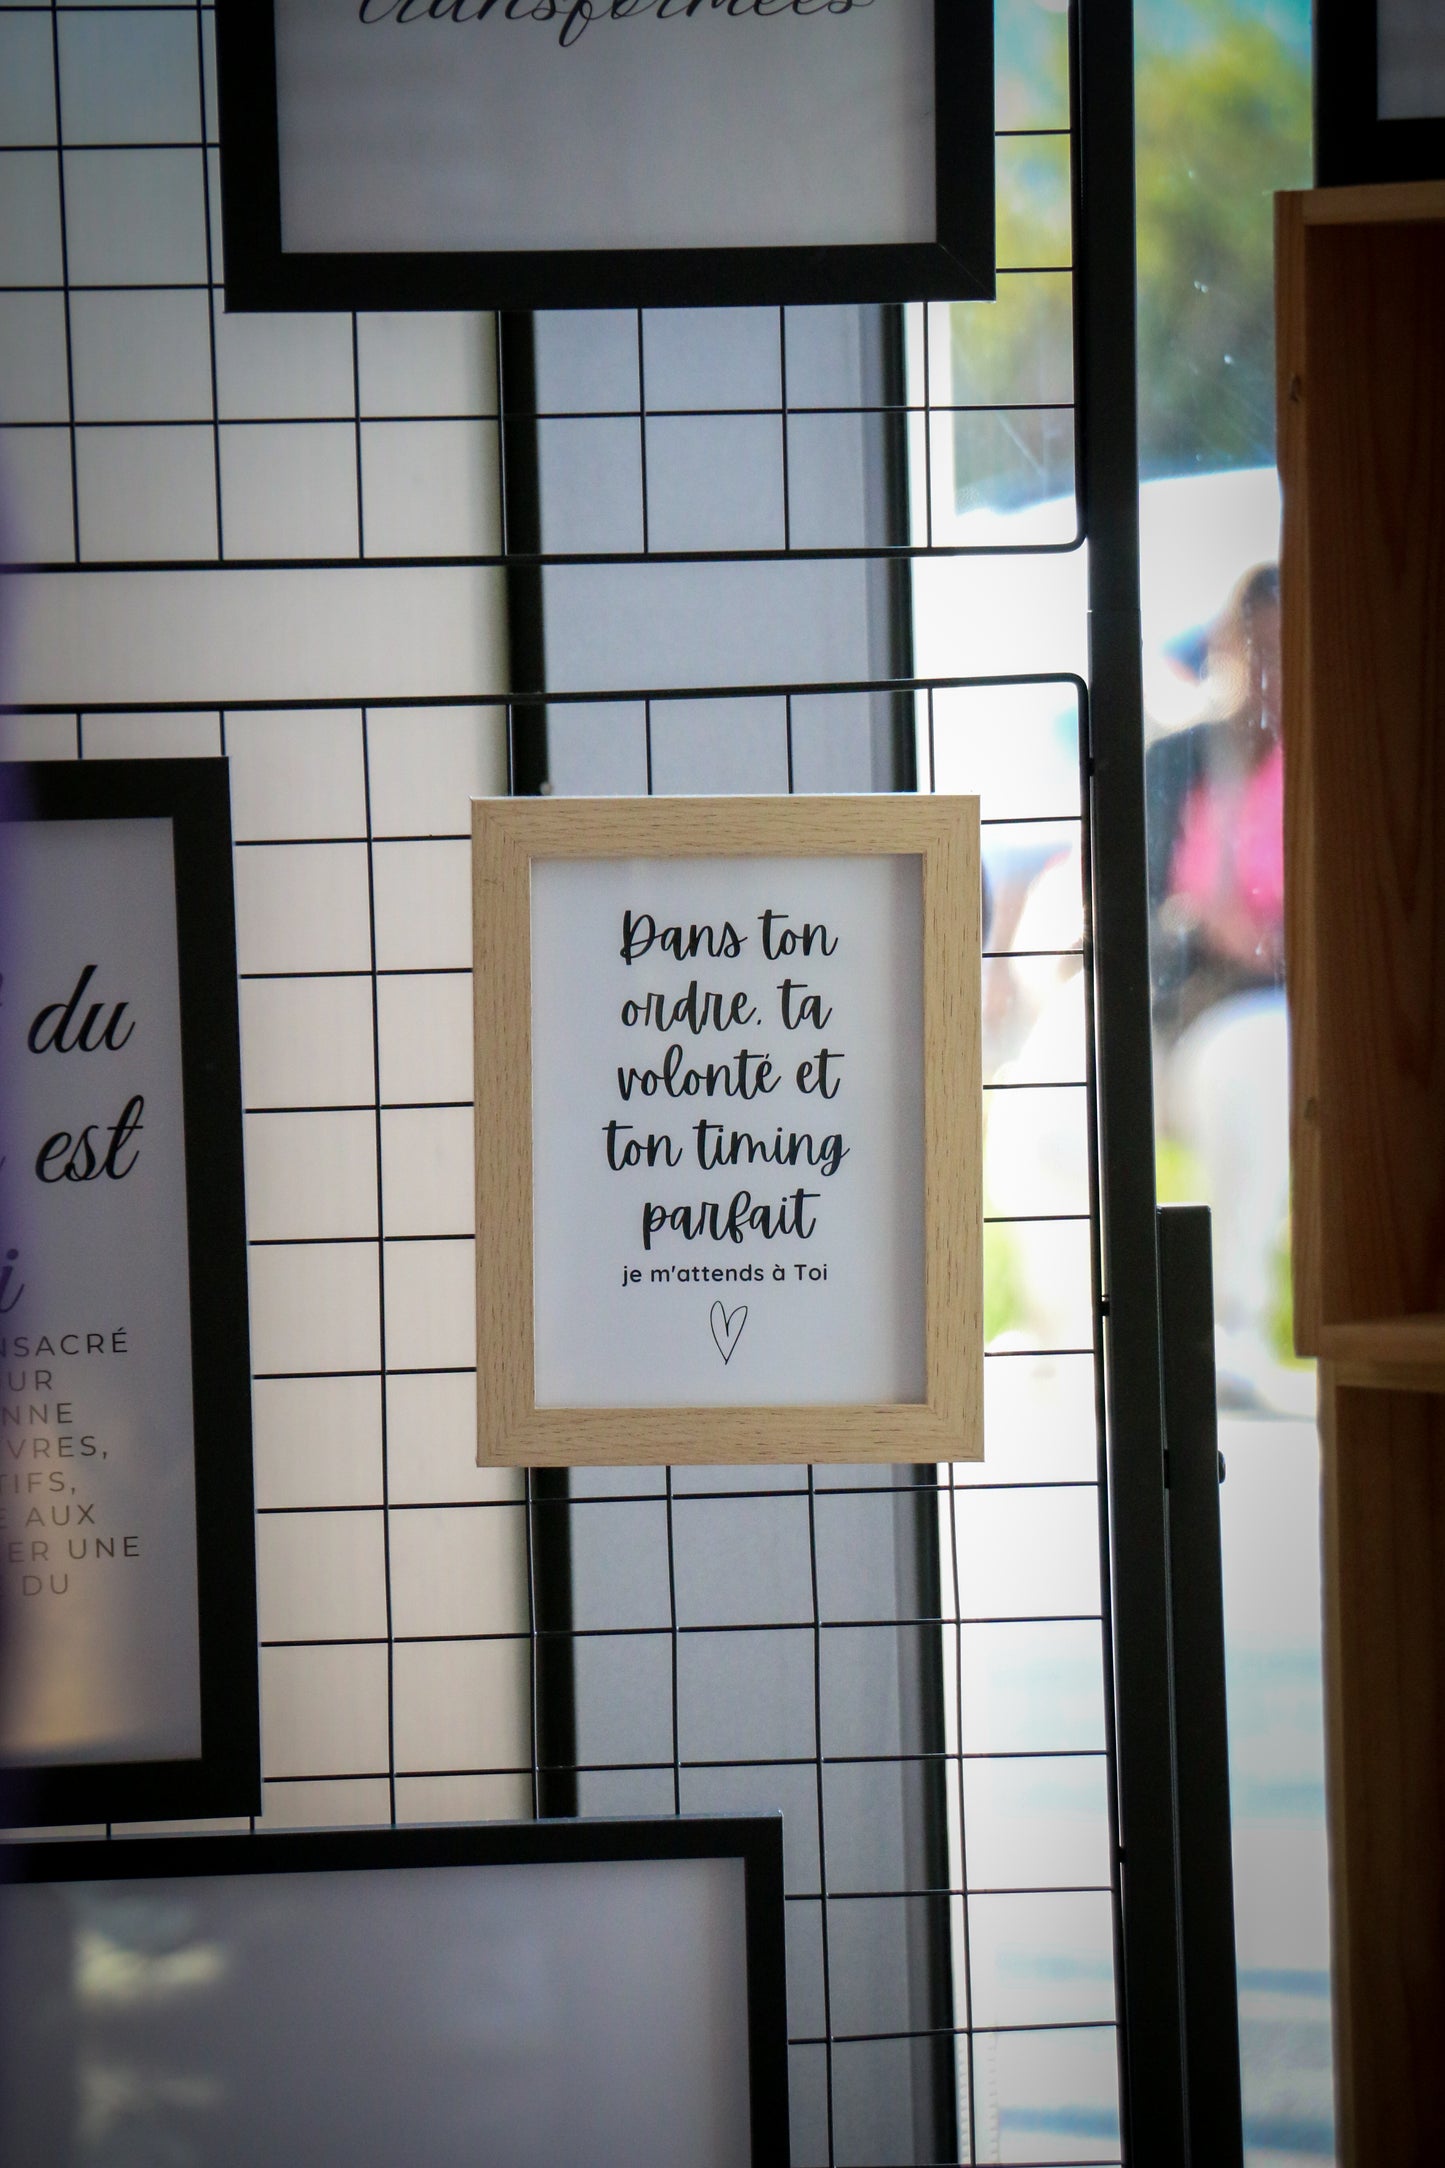 transformées
Dans ton
ordre, ta
volonté et
ton timing
parfait
je m'attends à Toi
du
est
UR
AUX
ER UNE
DU